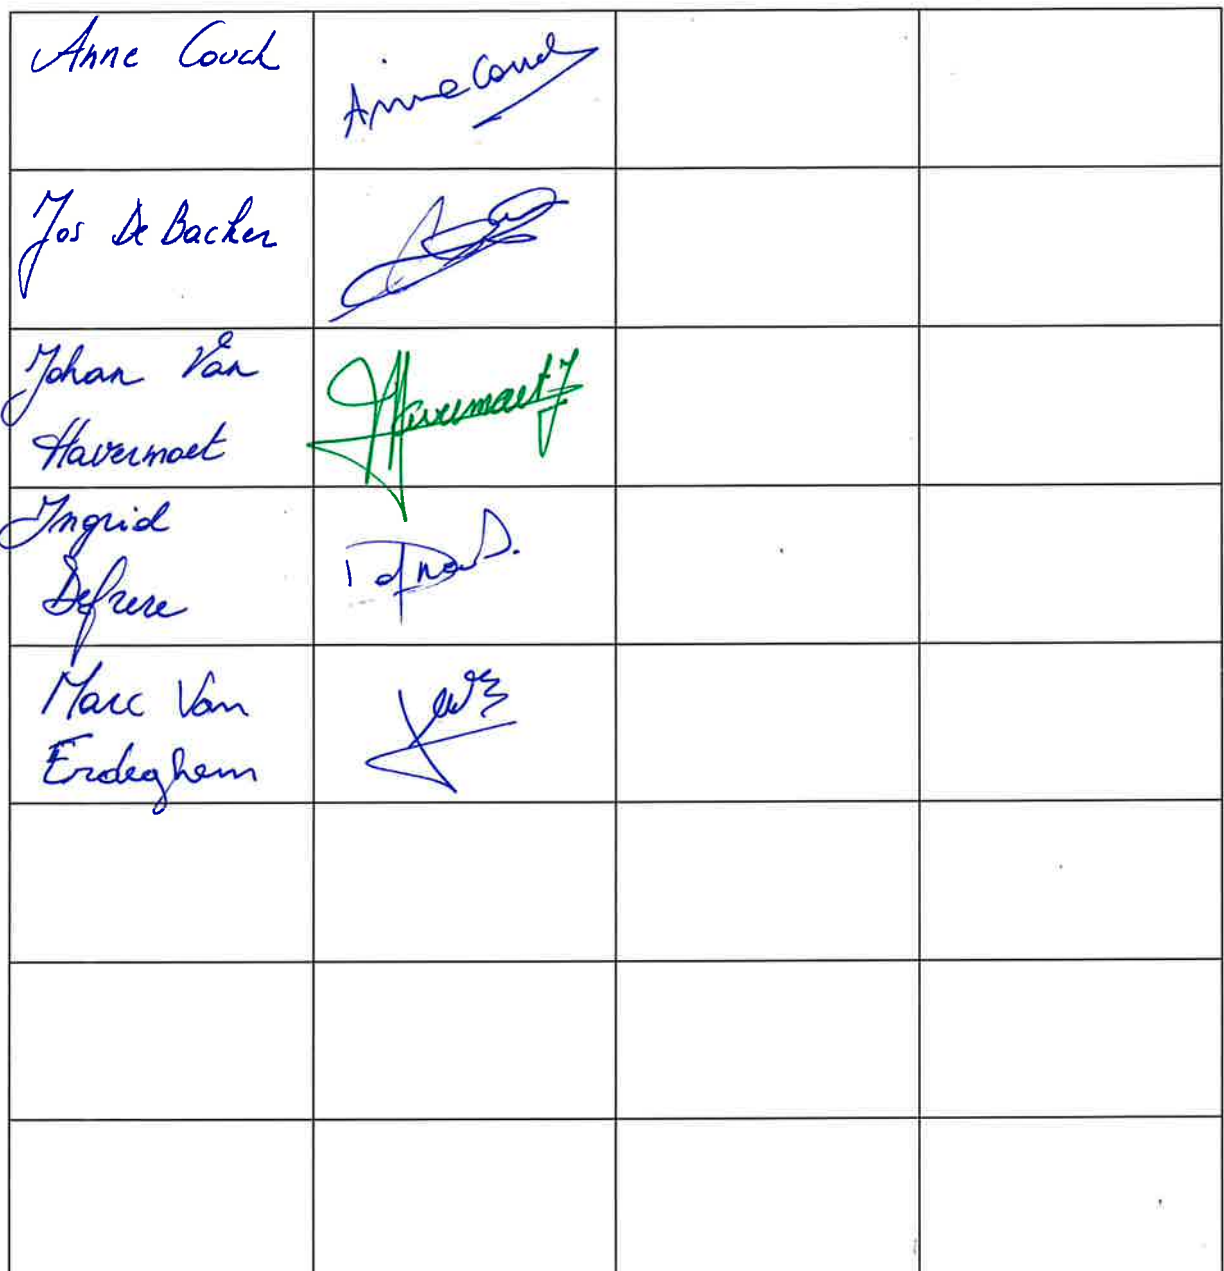 Anne Couck
Anne Couck
Jos De Backer
Johan Van
Havermaet
Havermaet J
Ingrid
Defrere
Marc Van
Erdeghem